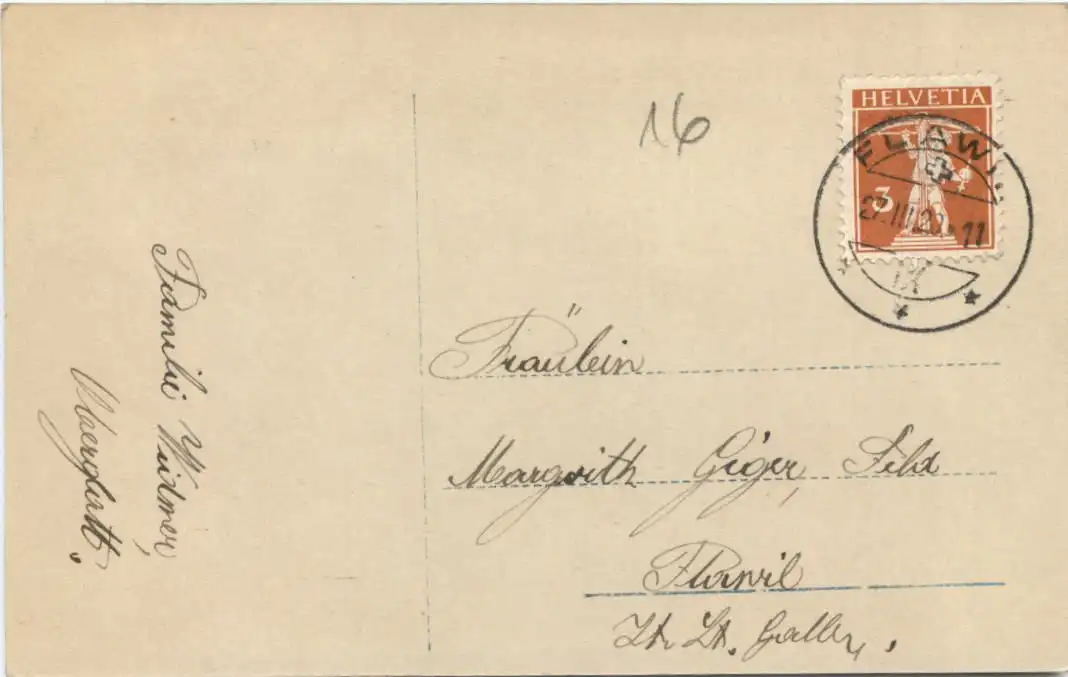 16
HELVETIA
3
FLAWIL
27.III.20. 11
IX
Fräulein
Margrith Geger, Feld
Flawil
Kt. St. Gallen,
Familie Widmer,